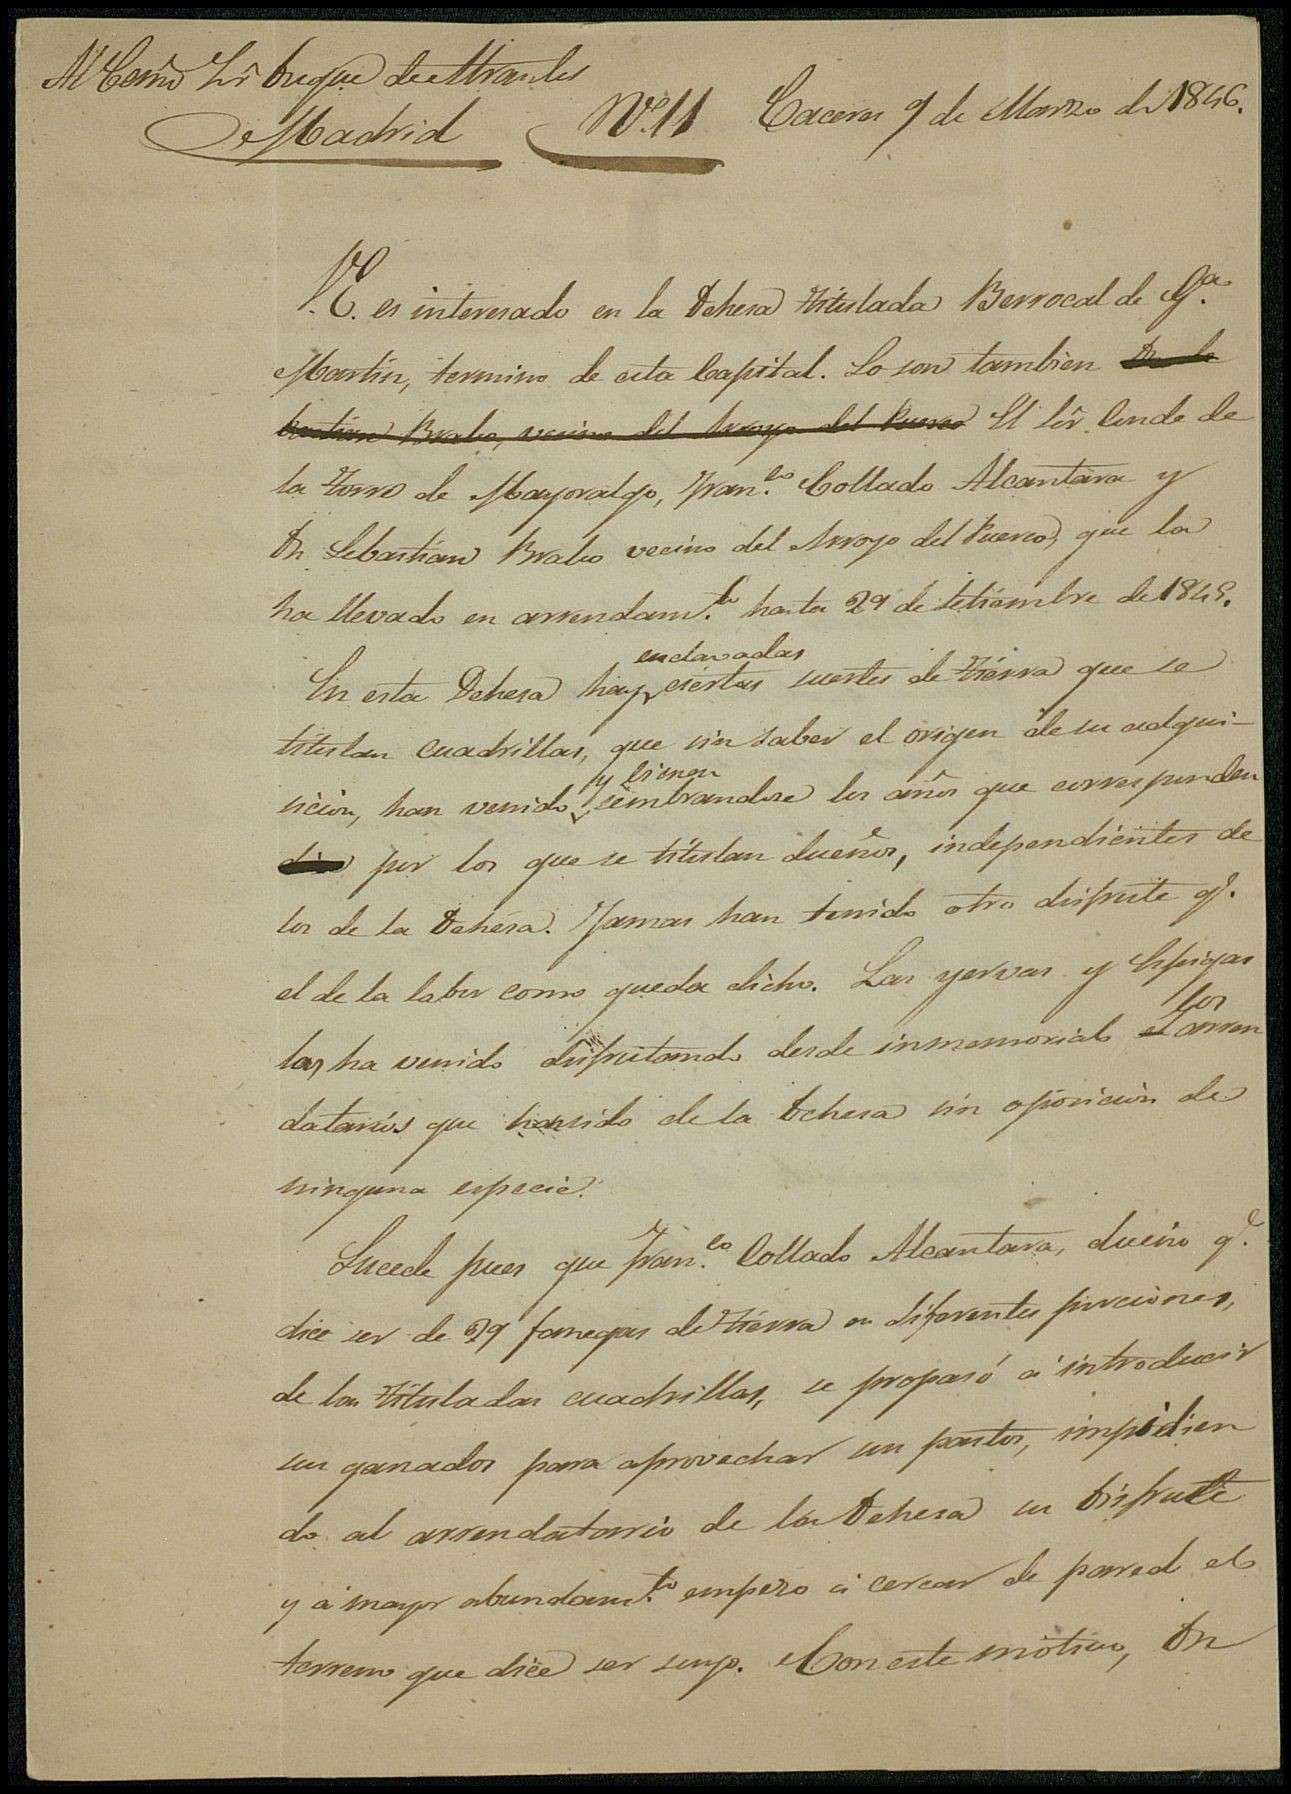 Al Exmo Sr Duque de Abrantes
Madrid
Nº. 11
Caceres 9 de Marzo de 1846.
V.E. es interesado en la Dehesa titulada Berrocal de Gª.
Martin, termino de esta Capital. Lo son tambien Dn Se
bastian Brabo, vecino del Arroyo del Puerco El Sr. Conde de
la Torre de Mayoralgo, Fran.co Collado Alcantara y
Dn Sebastian Brabo vecino del Arroyo del Puerco, que la
ha llevado en arrendam.to hasta 29 de Setiembre de 1845.
enclavadas
En esta Dehesa hay ciertas suertes de tierra que se
titulan cuadrillas, que sin saber el origen de su adqui-
y vienen
sicion, han venido sembrandose los años que corresponden
por los que se titulan dueños, independientes de
los de la Dehesa. Jamas han tenido otro disfrute q.e
el de la labor como queda dicho. Las yervas y Espigas
los
las ha venido disfrutando desde inmemorial el arren
datarios que han sido de la Dehesa sin oposicion de
ninguna especie.
Sucede pues que Fran.co Collado Alcantara, dueño q.e
dice ser de 29 fanegas de tierra en diferentes porciones,
de las tituladas cuadrillas, se propasó á introducir
sus ganados para aprovechar sus pastos, impidien
do al arrendatario de la Dehesa su disfrute
y á mayor abundam.to empezo á cercar de pared el
terreno que dice ser suyo. Con este motivo, Dn